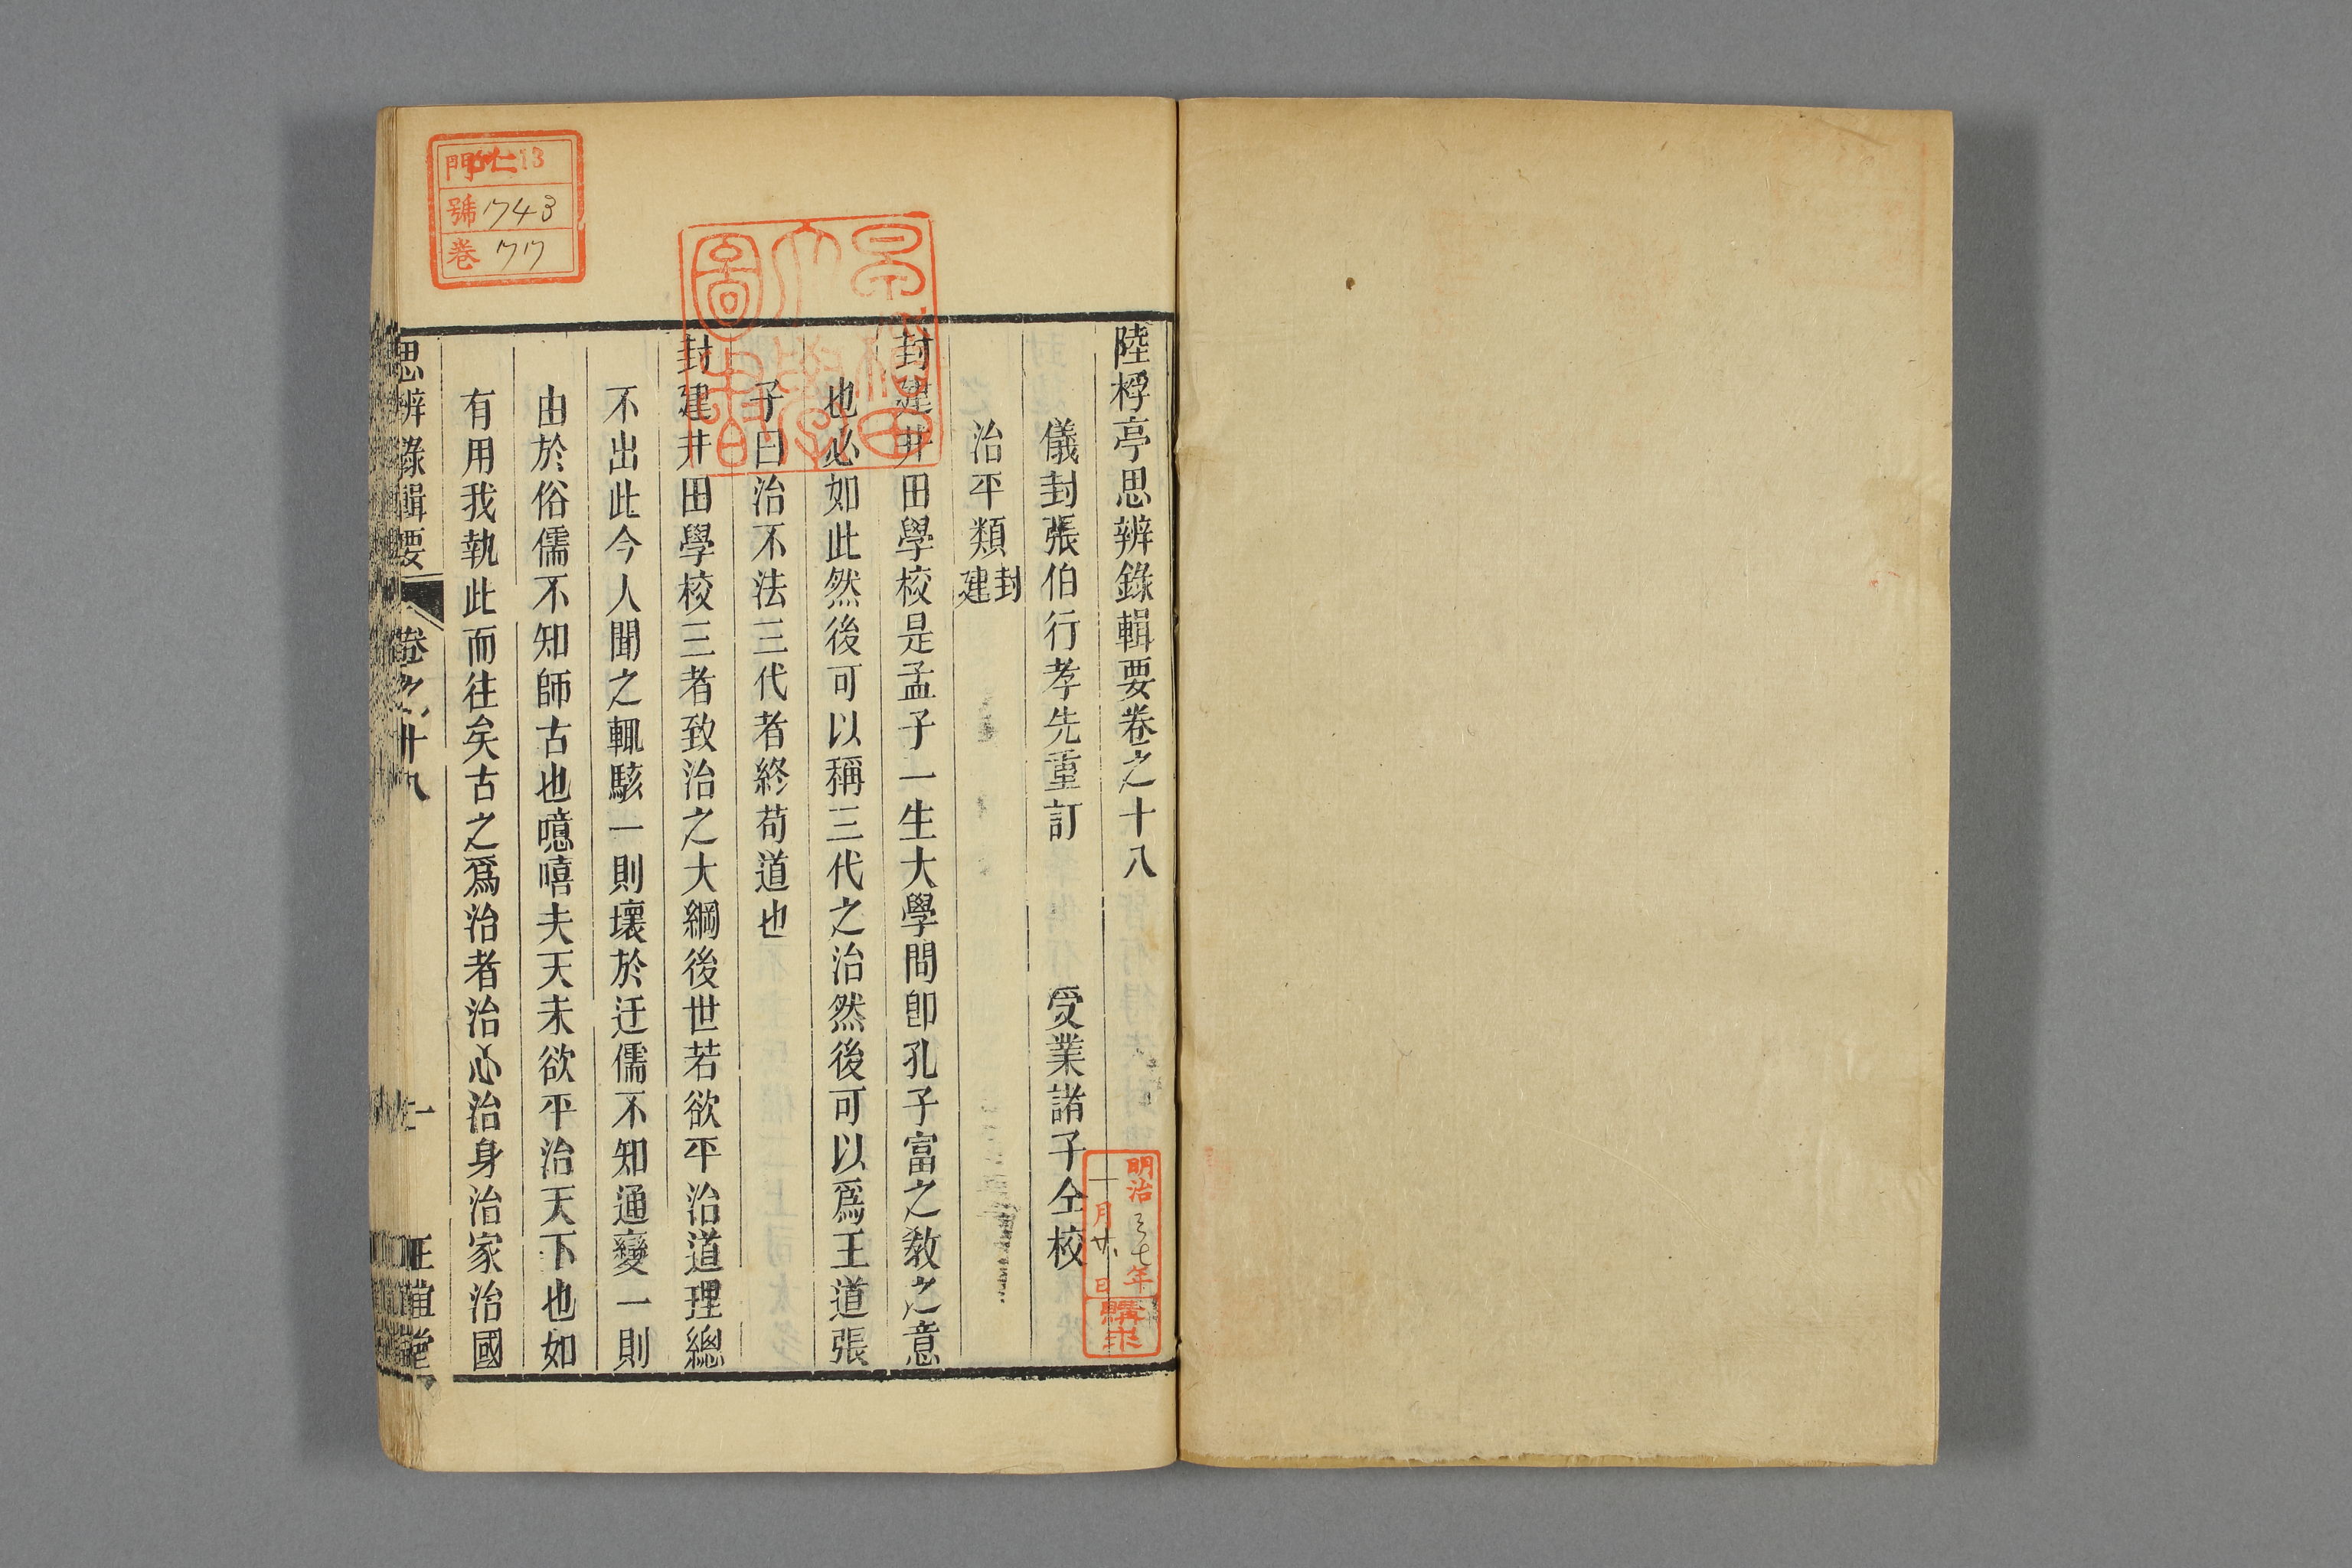 陸桴亭思辨錄輯要卷之十八
儀封張伯行孝先重訂　受業諸子仝校
治平類 封建
封建井田學校是孟子一生大學問卽孔子富之敎之意
也必如此然後可以稱三代之治然後可以爲王道張
子曰治不法三代者終苟道也
封建井田學校三者致治之大綱後世若欲平治道理總
不出此今人聞之輒駭一則壞於迂儒不知通變一則
由於俗儒不知師古也噫嘻夫天未欲平治天下也如
有用我執此而往矣古之爲治者治心治身治家治國
思辨錄輯要　卷之十八　一　正誼堂
門 仁 13
號 1743
卷 17
早稻田
大學
圖書
明治三七年
十月廿日
購求